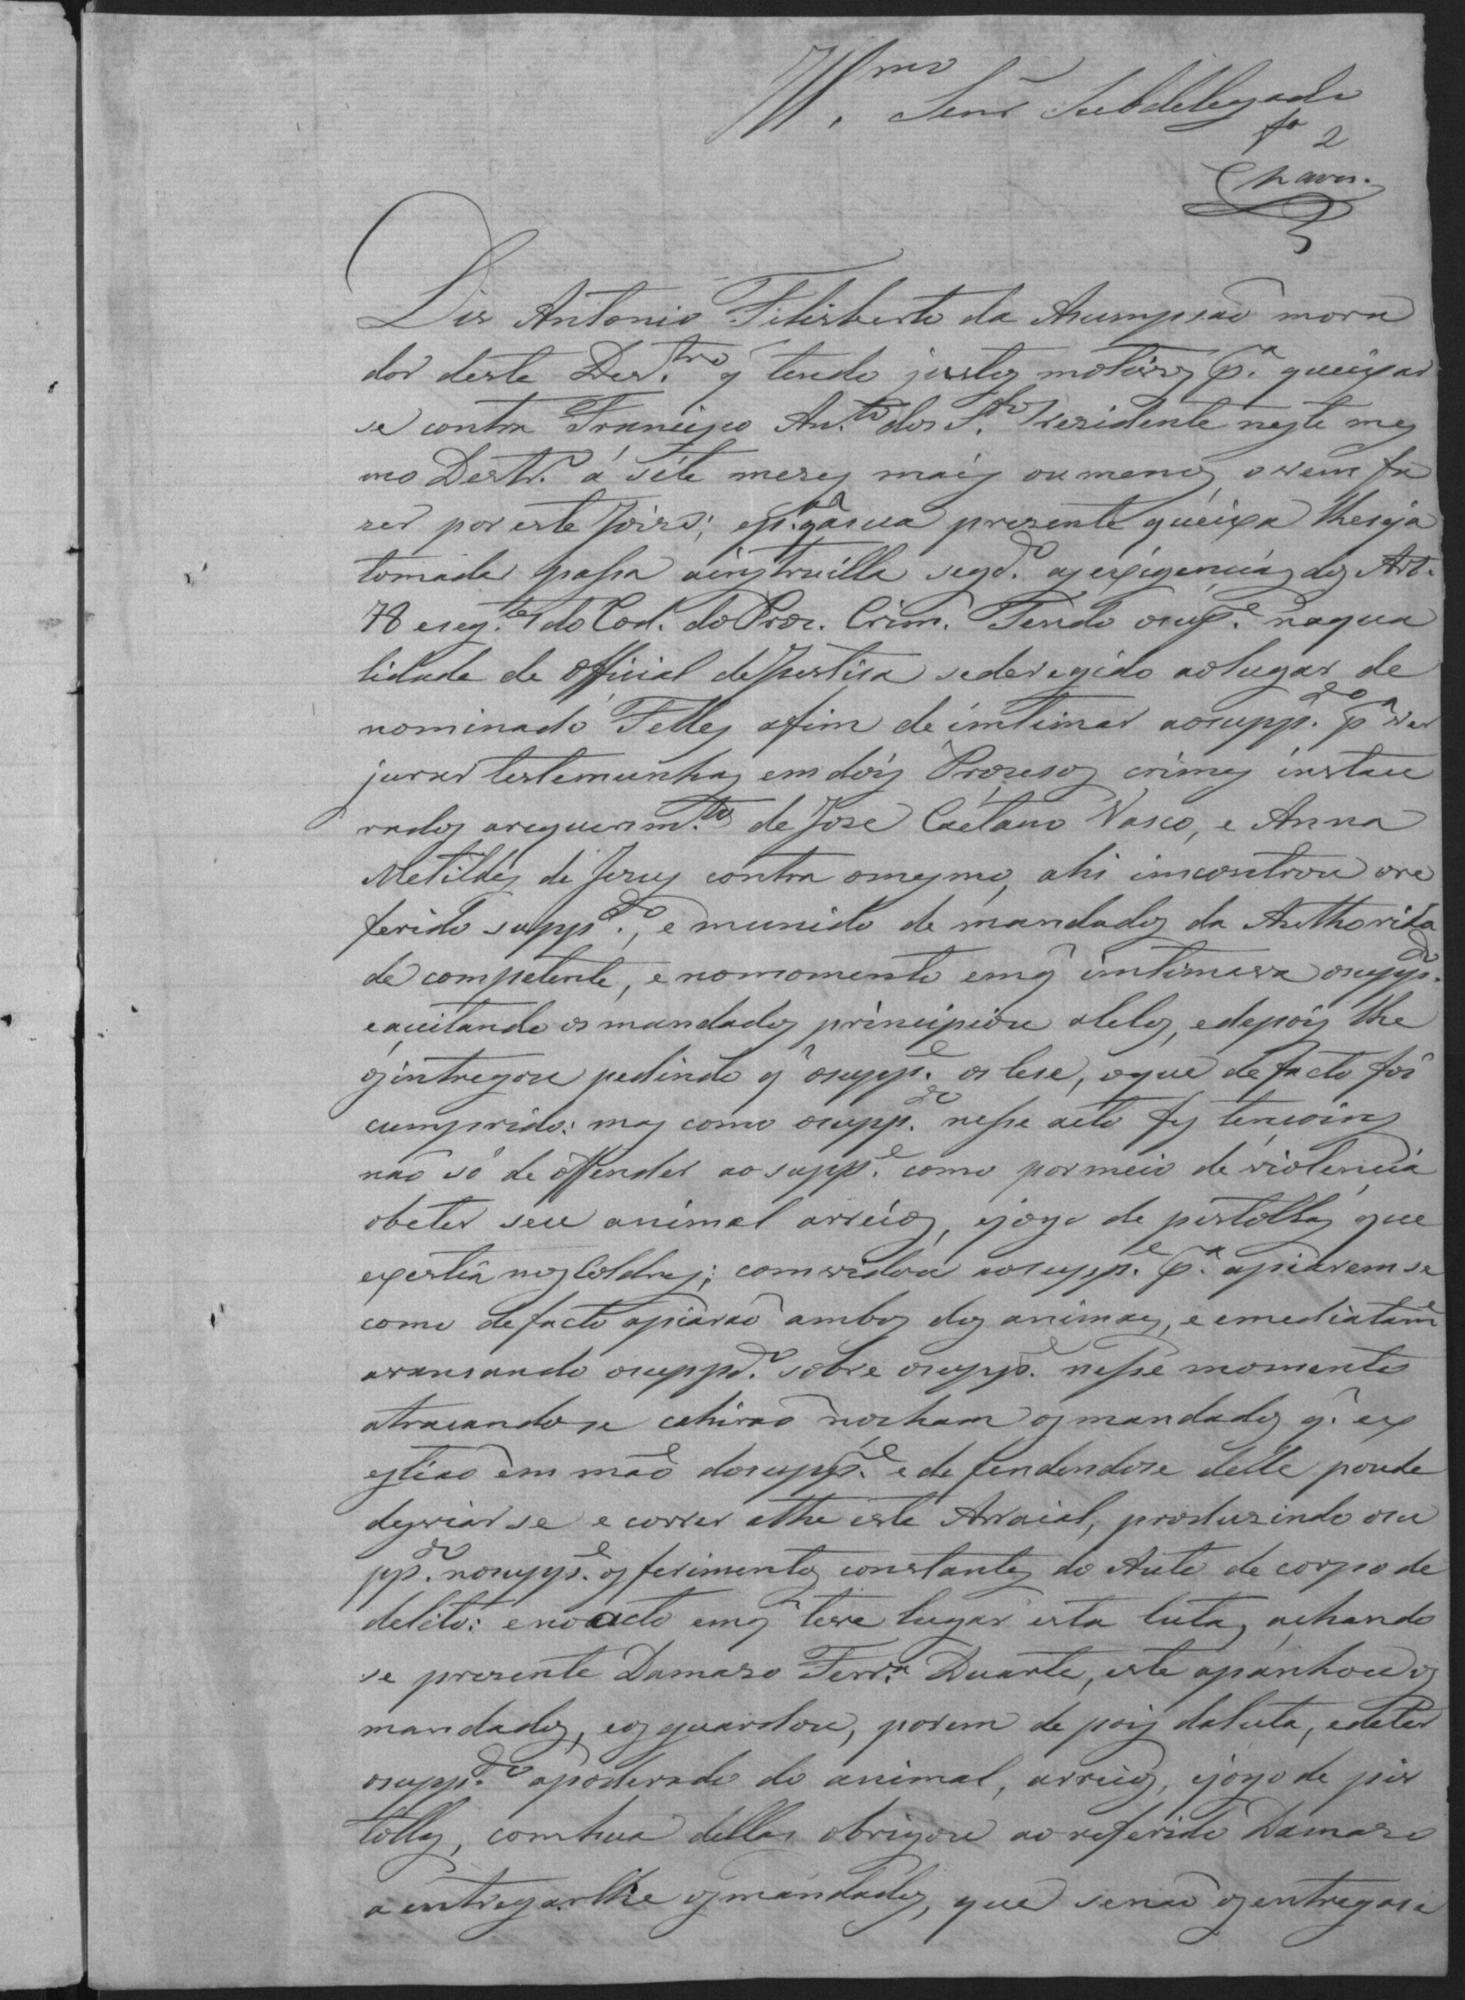 Illmo Senr Subdelegado
fo 2
Chaves
Dis Antonio Filisberto da Asumpsão mora
dor deste Des.tro q̃ tendo justos motivos p.a queixar
se contra Francisco An.to dos S.tos residente neste mes
mo Destr.o á séte mezes mais ou menos, o vem fa
zer por este Joizo; e p.a q̃ a sua prezente queixa lhe seja
tomada passa a instruilla seg.do as exigencias dos Art.
78 e seg.tes do Cod. do Proc. Crim. Tendo o sup.e na qua
lidade de Official de Justiça se deregido ao lugar de
nominado Telles afim de intimar ao supp.do p.a ver
jurar testemunhas em dois Procesos crimes instau
rados a requerim.to de Jose Caetano Vasco, e Anna
Metildes de Jesus contra o mesmo, ahi incontrou o re
ferido supp.do, e munido de mandados da Authorida
de competente, e no momento em q̃ intimava o supp.do
e aceitando os mandados principiou a lelos, e depois lhe
os intregou pedindo q̃ o supp.e os lese, o que de facto foi
cumprido: mas como o supp.do nesse acto fes tencoins
não só de offender ao supp.e como por meio de violencia
obeter seu animal arreios, e jogo de pistollas que
existia nos Coldres; comvidou ao supp.e p.a apiarem se
como de facto apiarão ambos dos animaes, e emediatam.e
avansando o supp.do sobre o supp.e nesse momento
atracandose cahirão no cham os mandados q̃ ex
estião em mão do supp.e e defendendose delle poude
desviar se e correr athe este Arraial, produzindo o su
pp.do no supp.e os ferimentos constantes do Auto de corpo de
delito: e no acto em q̃ teve lugar esta luta, achando
se prezente Damazo Ferr.a Duarte, este apanhou os
mandados, e os guardou, porem de pois da luta, e de ter
o supp.do apoderado do animal, arreios, e jogo de pis
tollas, com hua dellas obrigou ao referido Damazo
a entregarlhe os mandados, que se não os entregase